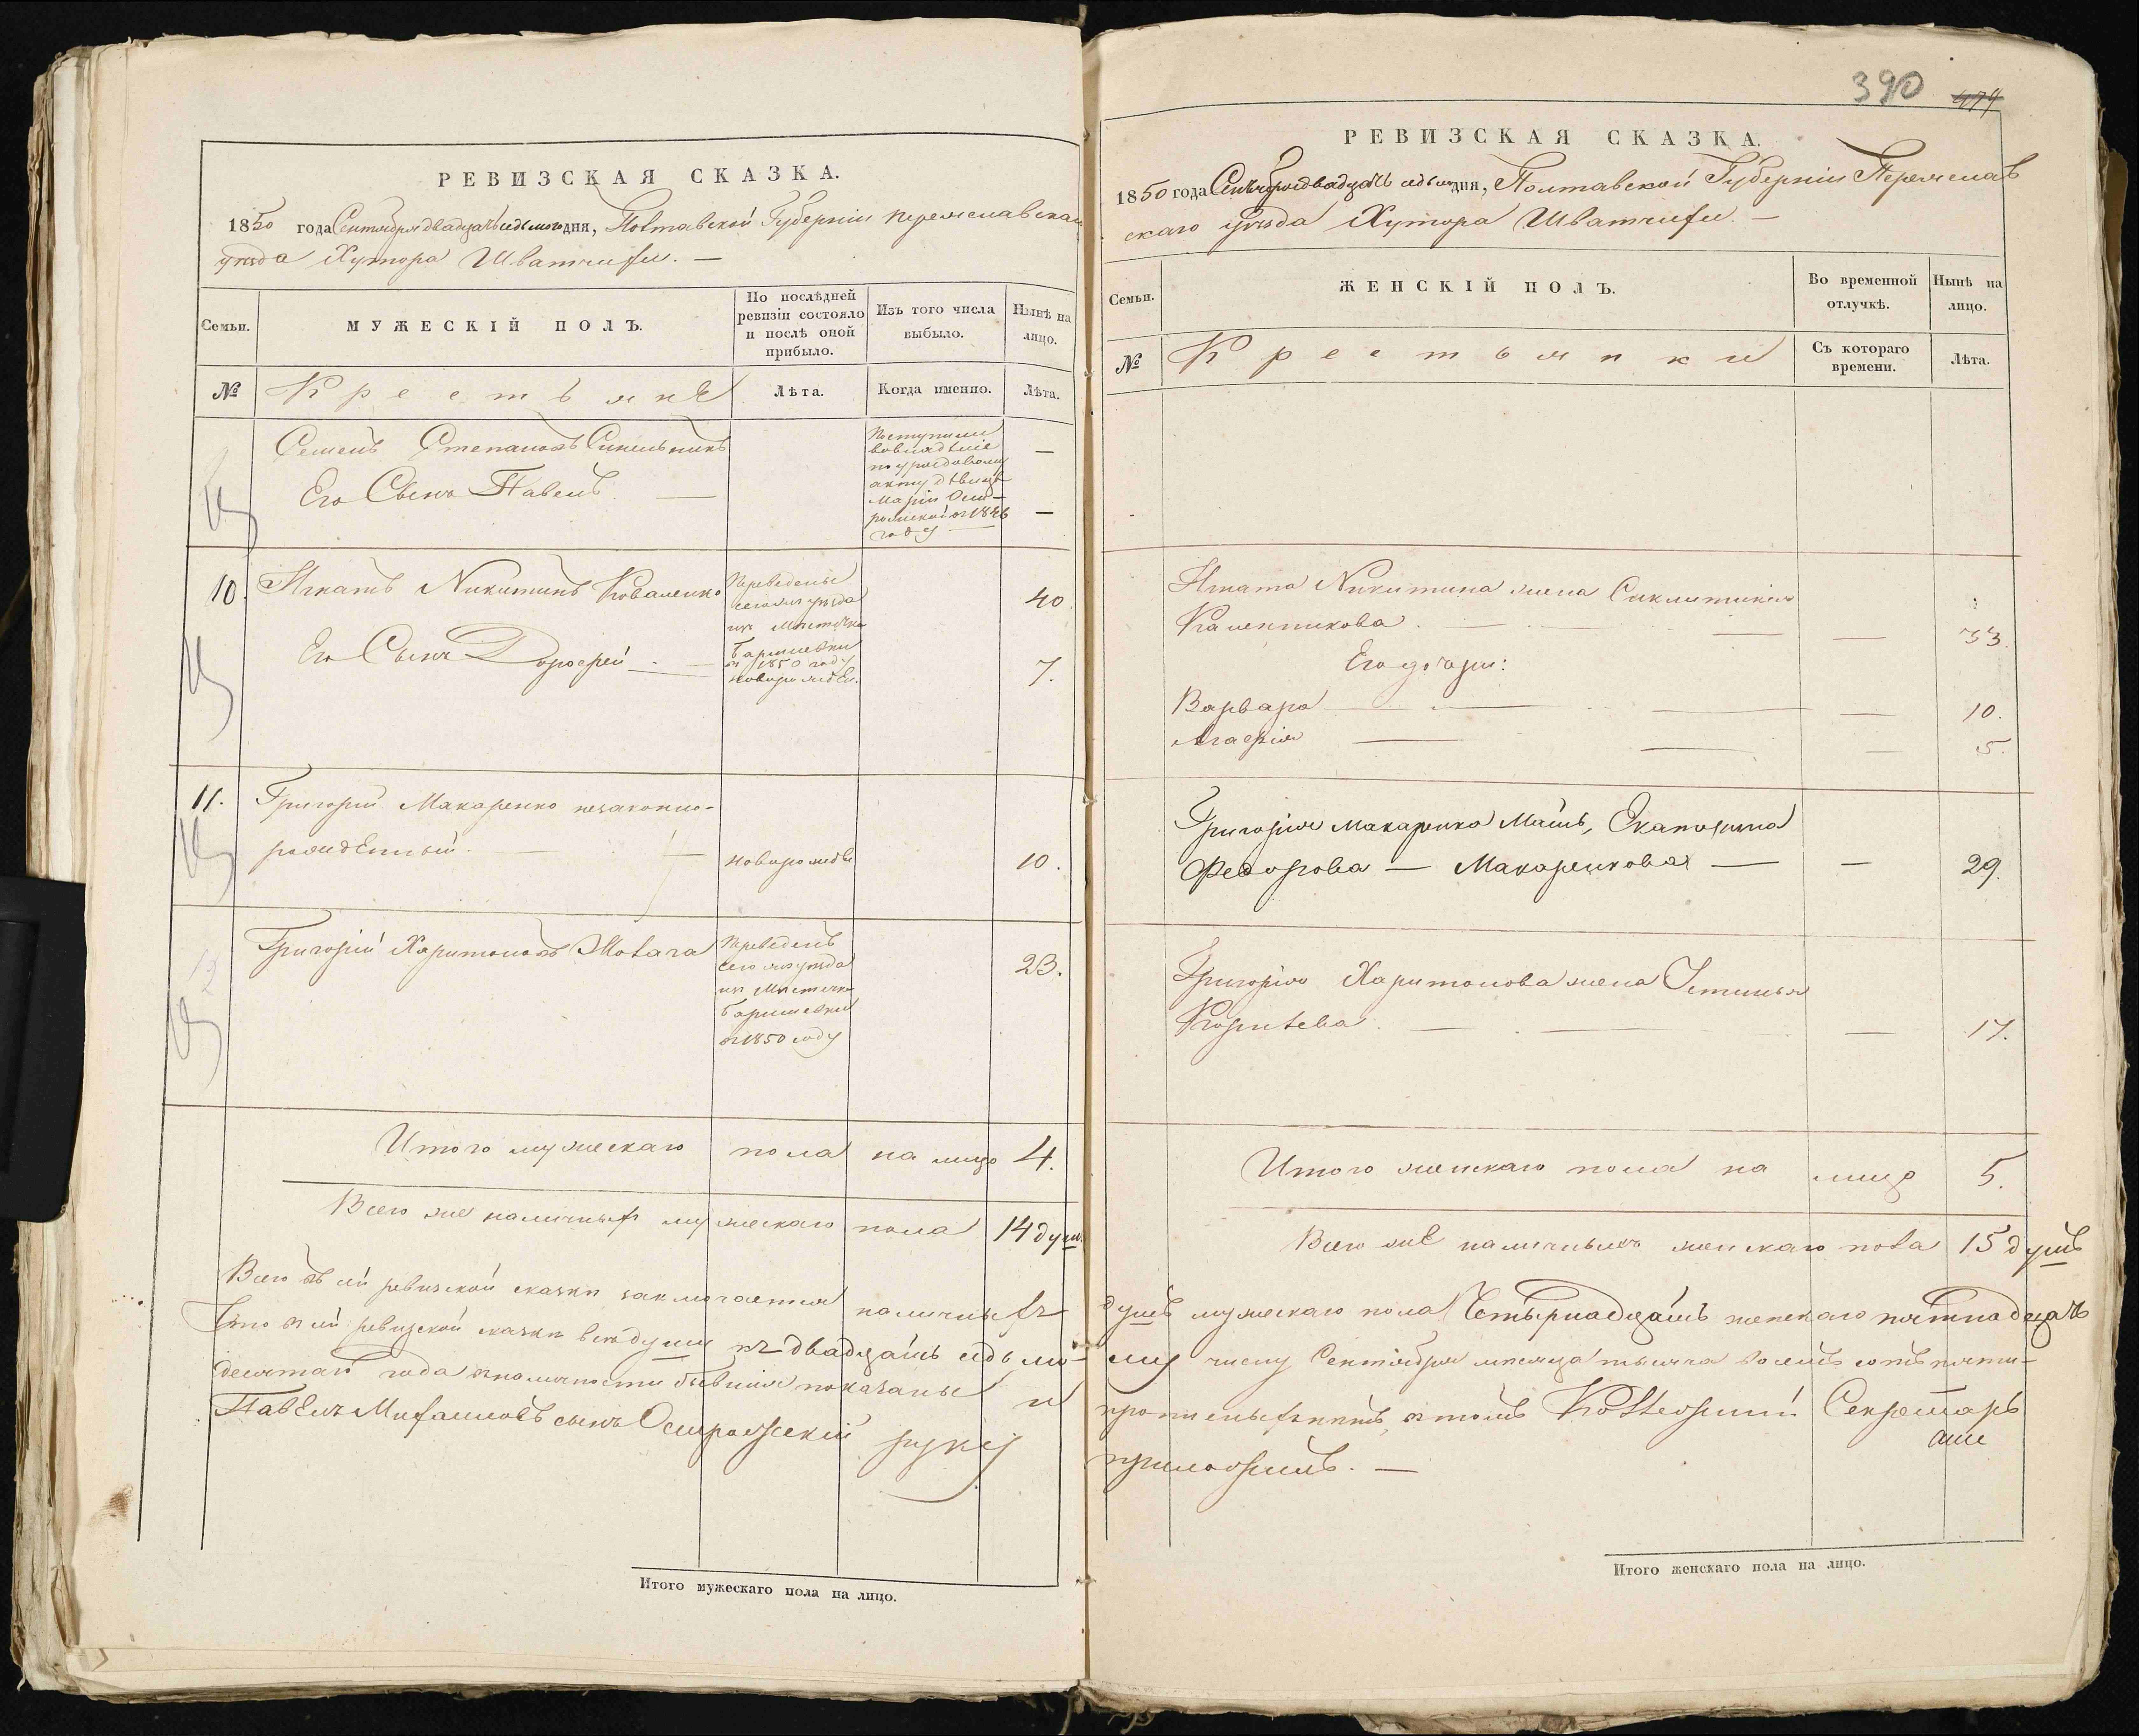 РЕВИЗСКАЯ СКАЗКА.
1850 года Сентября двадцать седьмого дня, Полтавской Губерніи Переяславскаго
уѣзда Хутора
Семьи.
МУЖЕСКІЙ ПОЛЪ.
По послѣдней
ревизіи состояло
и послѣ оной
прибыло.
Изъ того числа
выбыло.
Нынѣ на
лицо.
№
Крестьяне
Лѣта.
Когда именно.
Лѣта.
Семенъ Степановъ Синельникъ
Его Сынъ Павелъ —
Поступили
во владѣніе
по уѣздовому
акту дѣвицѣ
Маріи
1846
году —
—
—
10. Игнатъ Никитинъ Коваленко
Переведены
сего же уѣзда
изъ Мѣстечка
Баришевки
въ 1850 году
40
Его Сынъ Дорофей —
новорожден.
7.
11. Григорій Макаренко незаконно-
рожденный. —
новорожде
10.
12
Григорій Харитоновъ
Переведенъ
сего же уѣзда
изъ Мѣстечка
Баришевки
въ 1850 году
23.
Итого мужескаго пола на лицо 4.
Всего же наличныхъ мужескаго пола 14 душ.
Всего въ сей ревизской сказки заключается наличныхъ
Что въ сей ревизской сказки всѣ души къ двадцать седьмо-
десятаго года въ наличности бывшія показаны и
Павелъ Михаиловъ сынъ Острожскій руку
Итого мужескаго пола на лицо.
390 479
РЕВИЗСКАЯ СКАЗКА.
1850 года Сентября двадцать седьм дня, Полтавской Губерніи Переяслав
скаго уѣзда Хутора
Семьи.
ЖЕНСКІЙ ПОЛЪ.
Во временной
отлучкѣ.
Нынѣ на
лицо.
№
Крестьянки
Съ котораго
времени.
Лѣта.
Игната Никитина жена Синклитикія
Калениикова. — — 33.
Его дочери:
Варвара — — 10.
Агафія — — 5.
Григорія Макаренко Мать, Екатерина
Федорова — Макаренкова — — 29.
Григорія Харитонова жена Устинья
Корнѣева. — — 17.
Итого женскаго пола на лицо 5.
Всего же наличныхъ женскаго пола 15 душъ
душъ мужескаго пола Четырнадцать женскаго пятнадцать
му числу Сентября мѣсяца тысяча восемь сотъ пяти-
прописныхъ нѣтъ, въ томъ Секретарь
приложилъ. —
Итого женскаго пола на лицо.